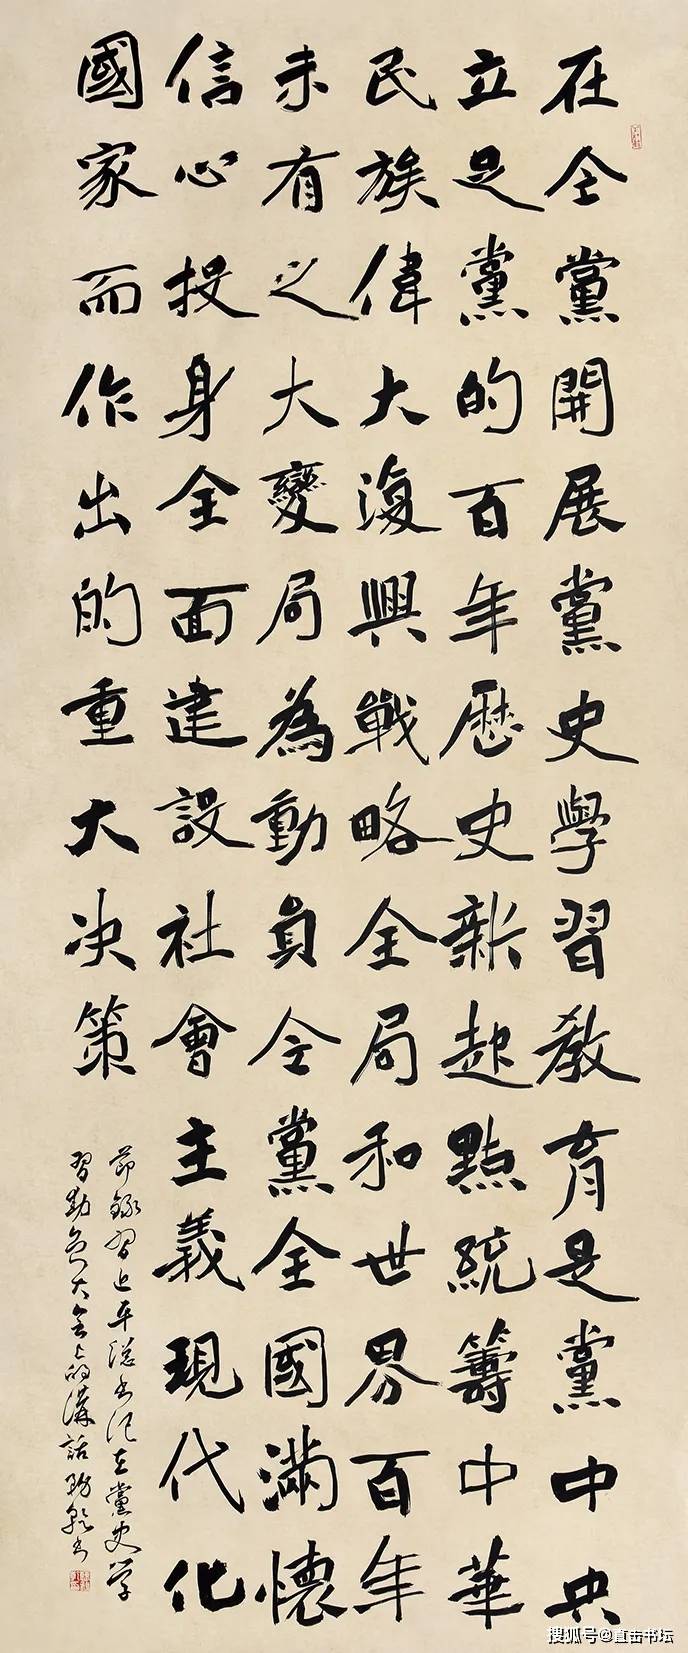 在全黨開展黨史學習教育是黨中央
立足黨的百年歷史新起點統籌中華
民族偉大復興戰略全局和世界百年
未有之大變局為動員全黨全國滿懷
信心投身全面建設社會主義現代化
國家而作出的重大决策
節錄習近平總书记在黨史学
習動员大会上的講話书
搜狐号@直击书坛